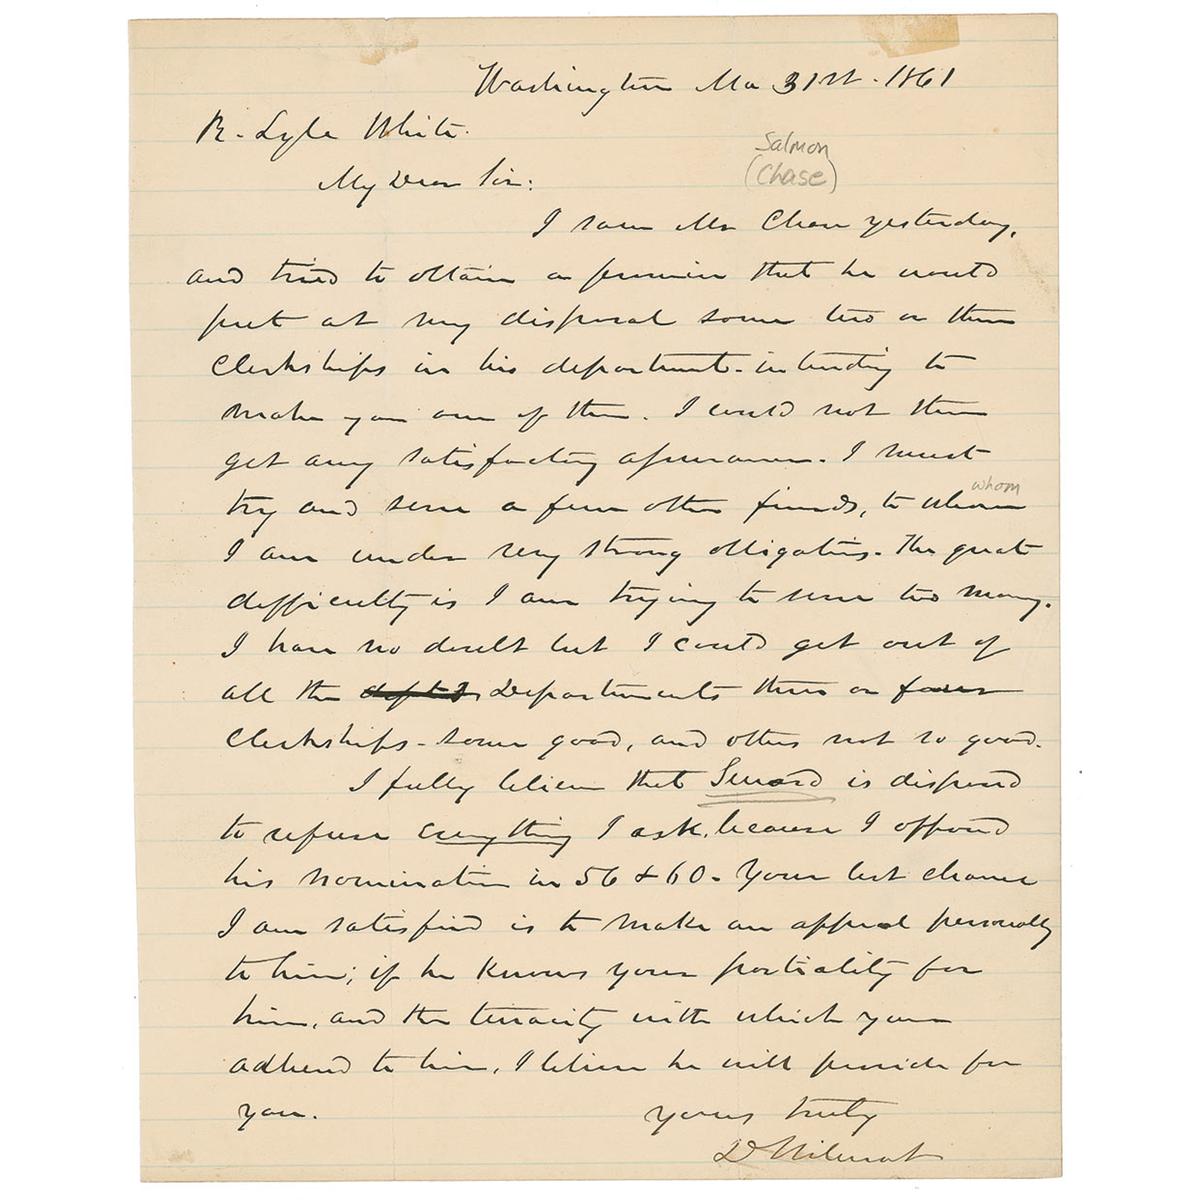 Washington Ma 31st. 1861
R. Lyle White.
Salmon
(Chase)
My Dear Sir:
I saw Mr Chase yesterday,
and tried to obtain a promise that he would
put at my disposal some two or three
Clerkships in his department - intending to
make you one of them. I could not then
get any satisfactory assurance. I must
whom
try and serve a few other friends, to whom
I am under very strong obligations. The great
difficulty is I am trying to serve too many.
I have no doubt but I could get out of
all the dept's Departments three or four
Clerkships - some good, and others not so good.
I fully believe that Seward is disposed
to refuse everything I ask, because I opposed
his nomination in 56 & 60. Your best chance
I am satisfied is to make an appeal personally
to him; if he knows your partiality for
him, and the tenacity with which you
adhered to him, I believe he will provide for
you.
yours truly
D Wilmot